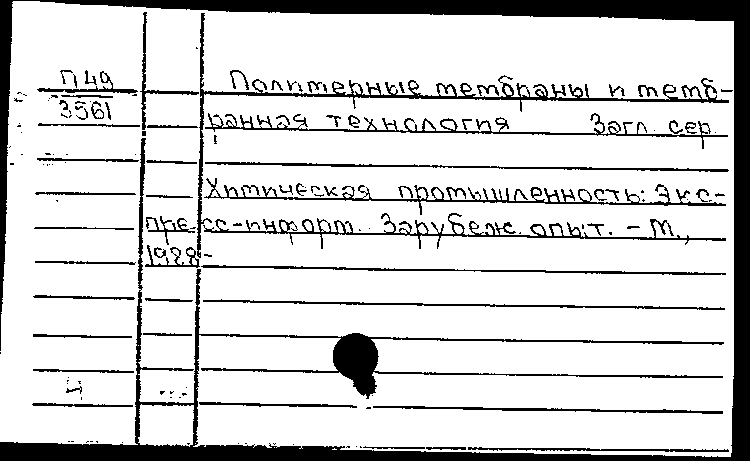 П49
3561
Полимерные мембраны и мемб-
ранная технология Загл. сер.
Химическая промышленность: Экс-
пресс-информ. Зарубеж. опыт. – М.,
1988-
Ч